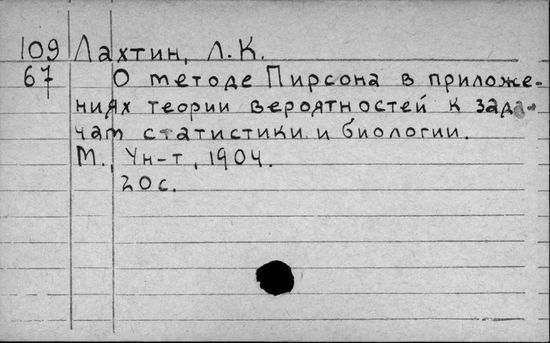 109 Лахтин, Л.К.
67 О методе Пирсона в приложе-
ниях теории вероятностей к зада-
чам статистики и биологии.
М., Ун-т, 1904.
20с.